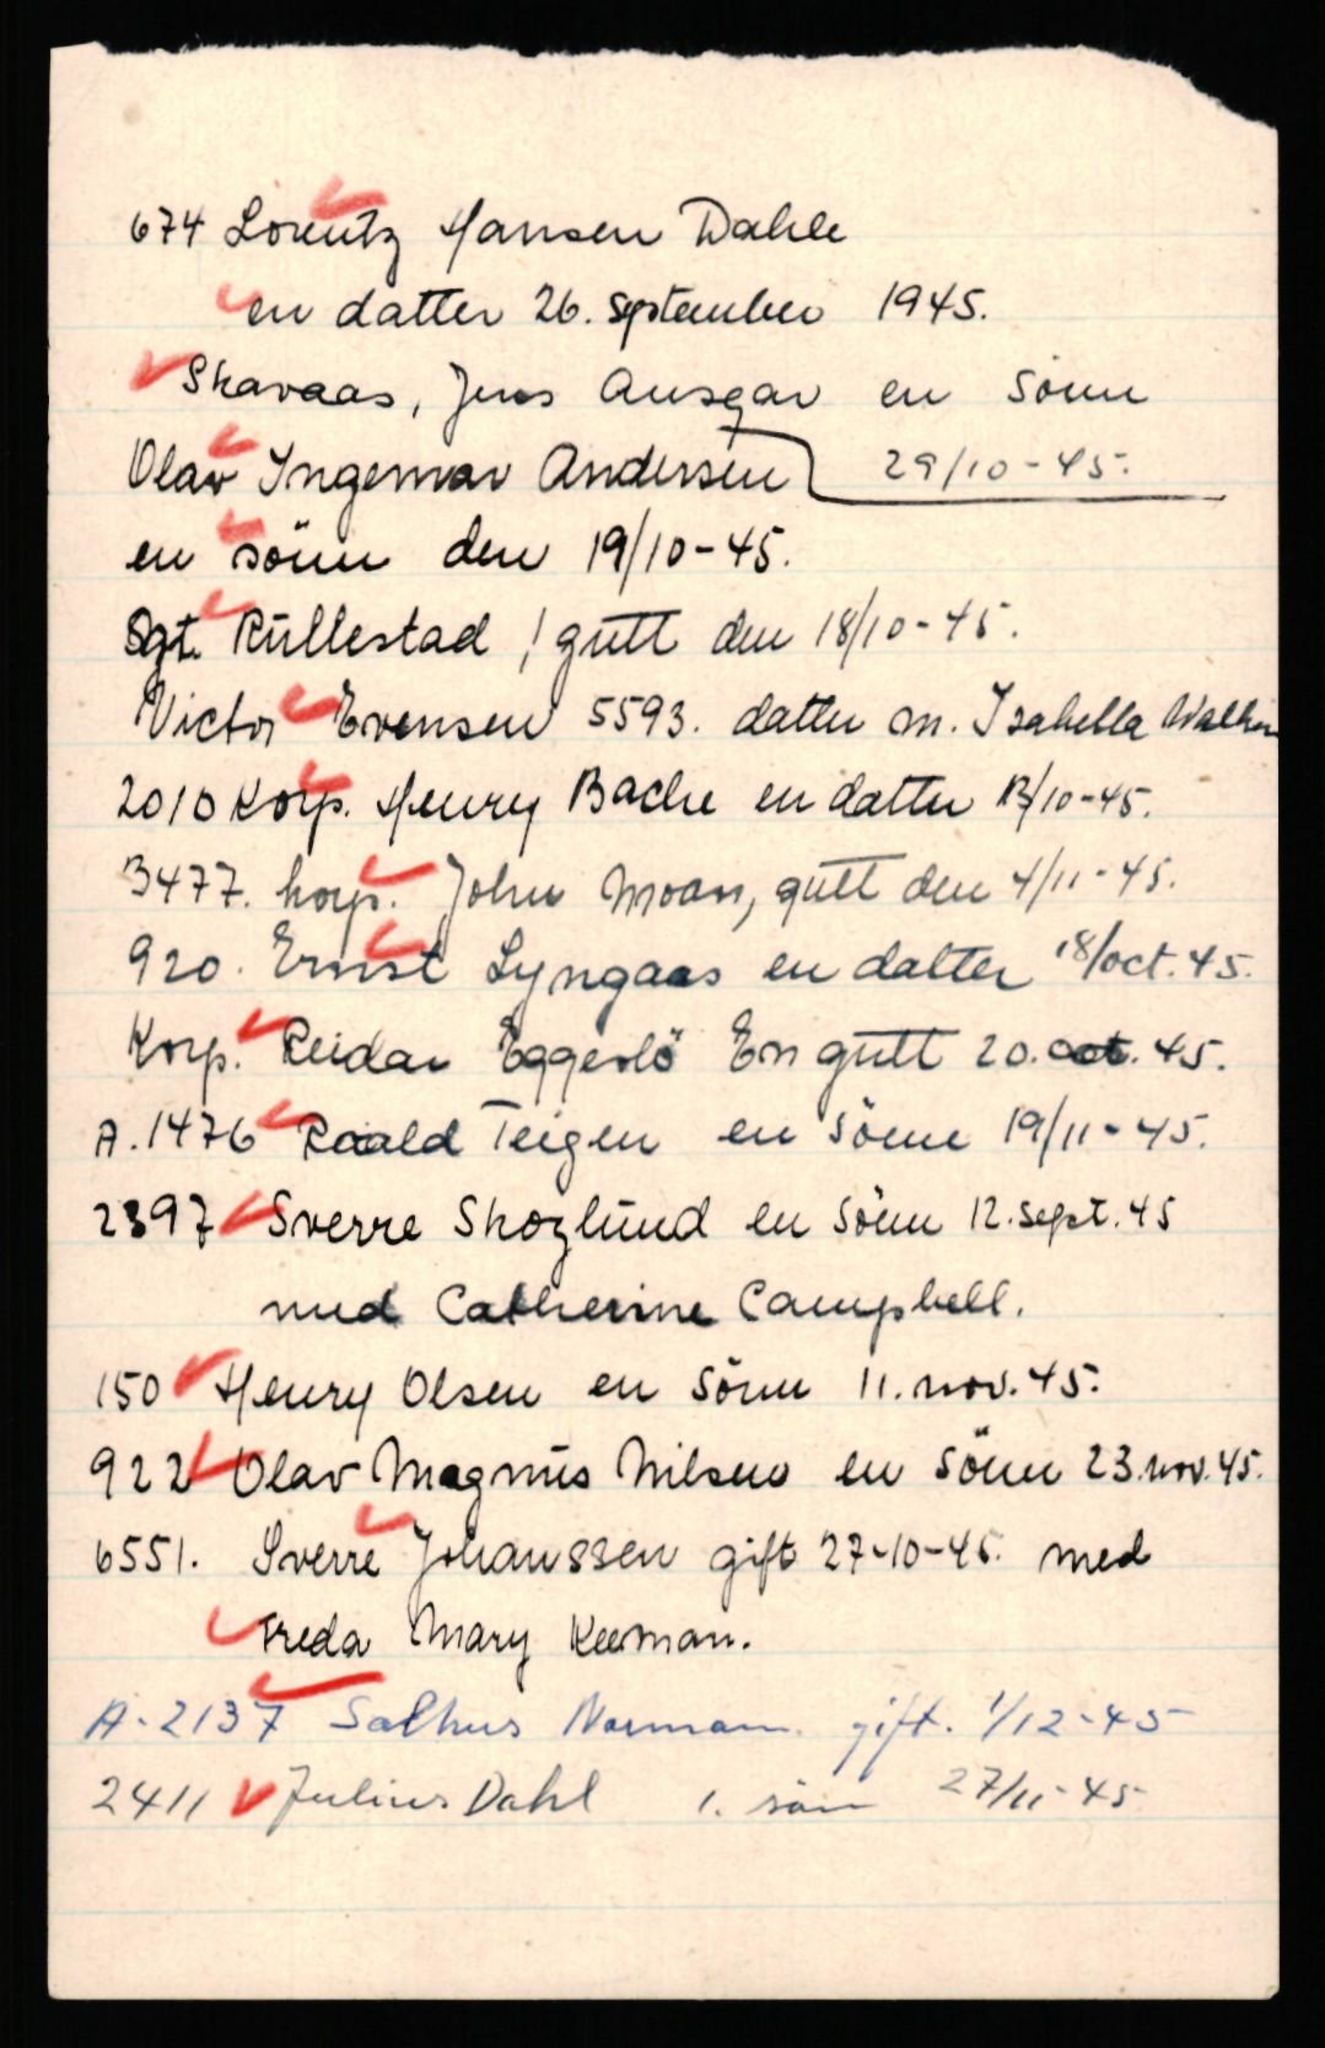 674 Lorentz Hansen Dahle
en datter 26. september 1945.
Skavaas, Jens Ansgar en sönn
29/10-45.
Olav Ingemar Andersen
en sönn den 19/10-45.
Sgt. Rullestad, 1 gutt den 18/10-45.
Victor Evensen 5593. datter m. Isabella
2010 Korp. Henry Bache en datter 13/10-45.
3477. korp. John Moan, gutt den 4/11-45.
920. Ernst Lyngaas en datter 18/oct. 45.
Korp. Reidar Eggeslö En gutt 20. oct. 45.
A. 1476 Roald Teigen en sönn 19/11-45.
2397 Sverre Skoglund en sönn 12. sept. 45
med Catherine Campbell.
150 Henry Olsen en sönn 11. nov. 45.
922 Olav Magnus Nilsen en sönn 23. nov. 45.
6551. Sverre Johanssen gift 27-10-45. med
Freda Mary Keeman.
A-2137 Salhus Norman gift. 1/12-45
2411 Julius Dahl 1. sön 27/11-45